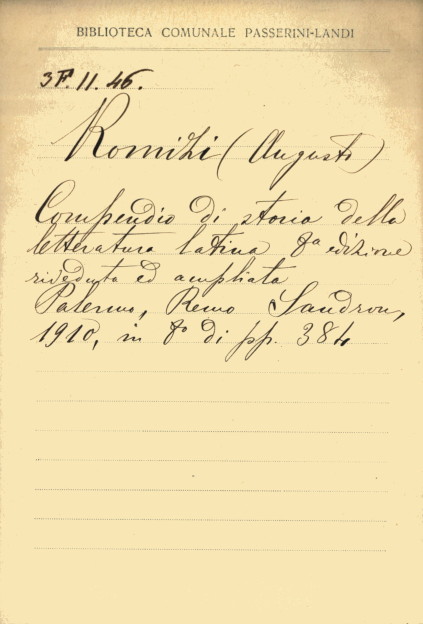 BIBLIOTECA COMUNALE PASSERINI-LANDI
3F.11.46.
Romizi (Augusto)
Compendio di storia della
letteratura latina 8ª edizione
riveduta ed ampliata
Palermo, Remo Sandron,
1910, in 8º di pp. 384